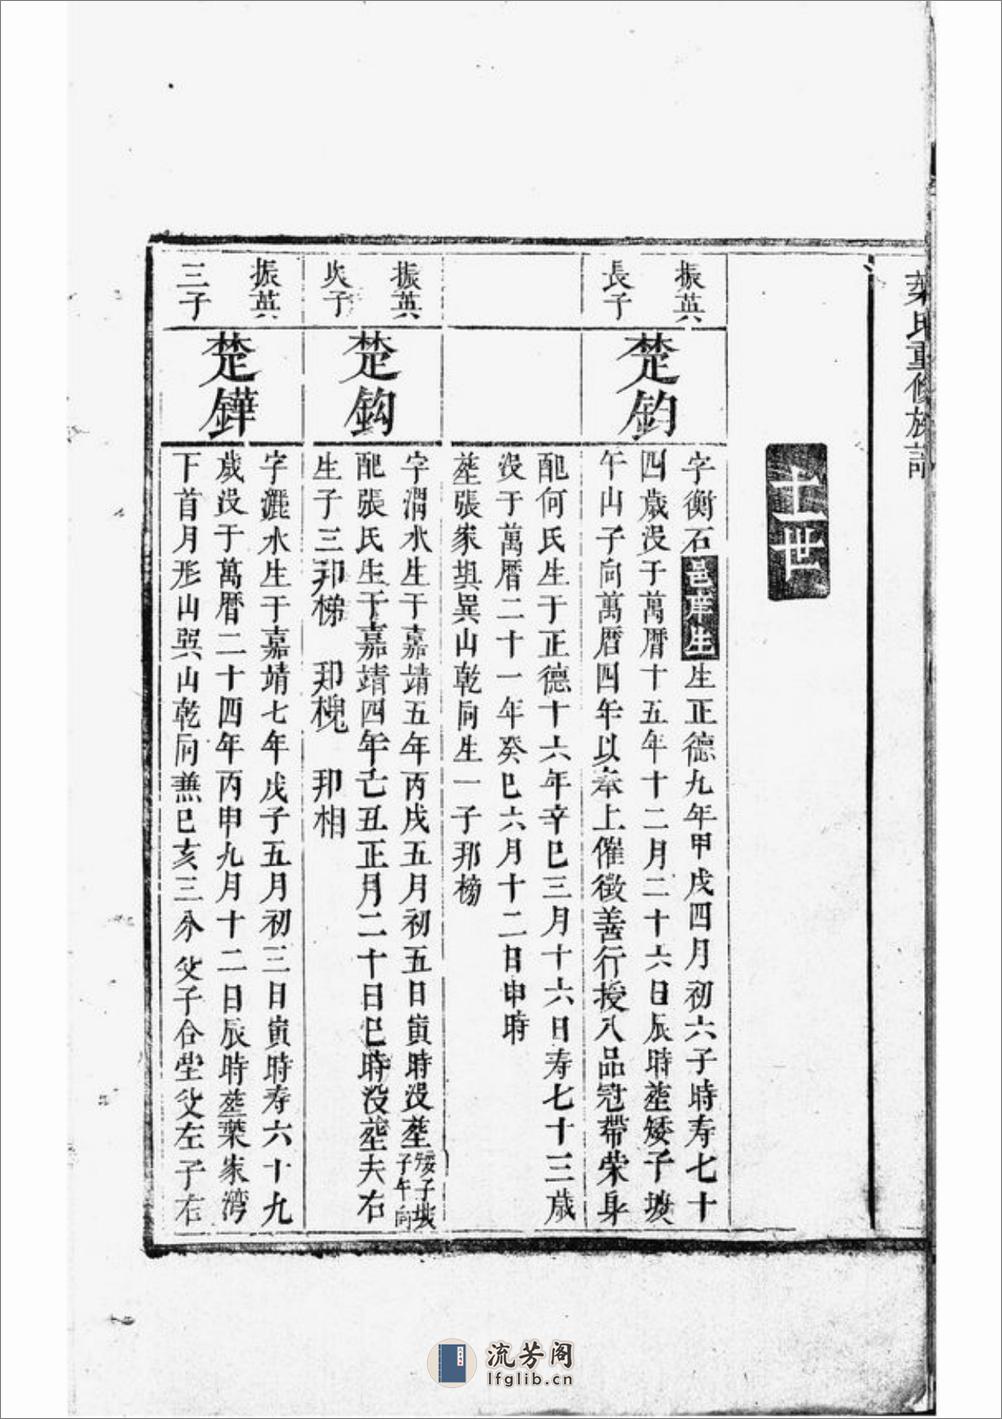 葉氏重修族譜
十一世
振英
長子
楚鈞
字衡石邑庠生生正德九年甲戌四月初六子時寿七十
四歳没于萬曆十五年十二月二十六日辰時塟矮子坡
午山子向萬曆四年以奉上催徵善行授八品冠帶荣身
配何氏生于正德十六年辛巳三月十六日寿七十三歳
没于萬曆二十一年癸巳六月十二日申時
塟張家垻巽山乾向生一子邦榜
振英
次子
楚鈎
字渭水生于嘉靖五年丙戌五月初五日寅時没塟矮子坡
子午向
配張氏生于嘉靖四年乙丑正月二十日巳時没塟夫右
生子三邦梯 邦槐 邦相
振英
三子
楚鏵
字漇水生于嘉靖七年戊子五月初三日寅時寿六十九
歳没于萬曆二十四年丙申九月十二日辰時塟葉家湾
下首月形山巽山乾向兼巳亥三分父子合塋父左子右
流芳阁
lfglib.cn